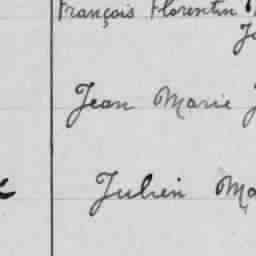 François Florentin
Jean Marie
Julien Ma